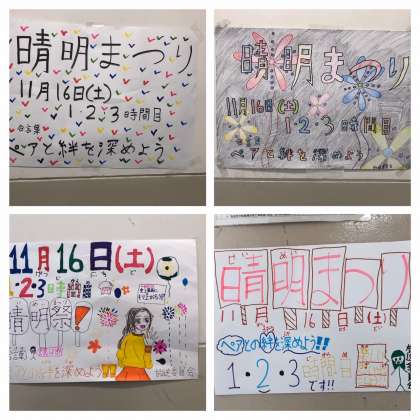 晴明まつり
11月16日(土)
1・2・3時間目
合言葉
ペアと絆を深めよう
晴明まつり
11月16日(土)
1・2・3時間目
ペアと絆を深めよう
11月16日(土)
1・2・3時間目
晴明祭
ペアとの絆を深めよう
放送委員会
晴明まつり
11月16日(土)
ペアとの絆を深めよう!!
1・2・3時間目
です!!